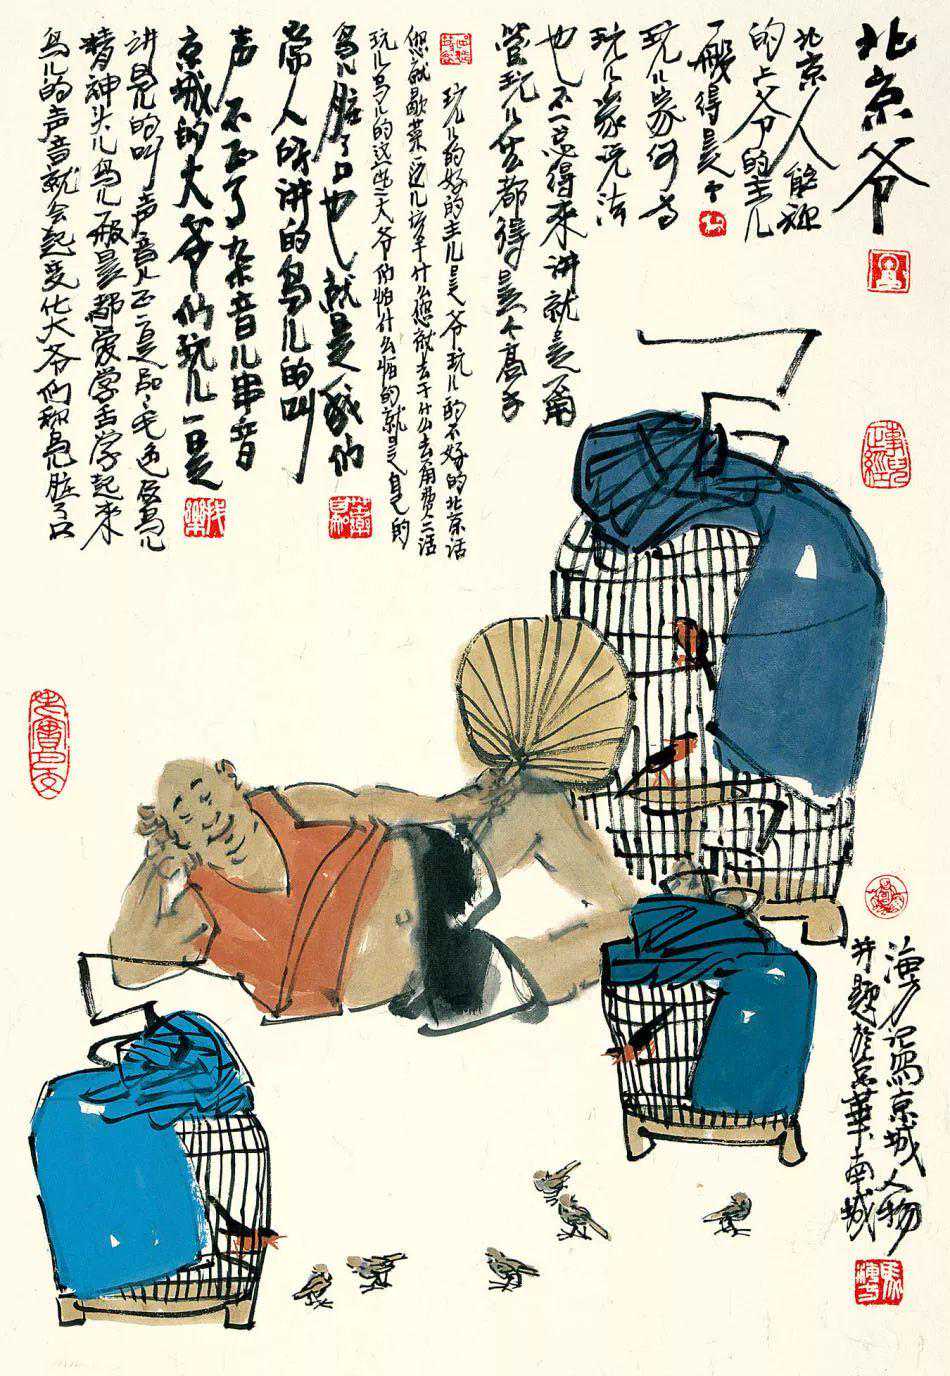 北京爷
北京人能称
的上爷的主儿
一般得是个
玩儿家何为
玩儿家说法
也不一总得来讲就是甭
管玩儿什么都得是个高手
玩儿的好的主儿是爷玩儿的不好的北京话
您就歇菜边儿该干什么您就去干什么去甭费二话
玩儿鸟儿的这些大爷们怕什么怕的就是自己的
鸟儿脏了口也就是我们
常人所讲的鸟儿的叫
声不正了杂音儿串音
京城的大爷们玩儿一是
讲鸟儿的叫声音儿正二是品毛色及鸟儿
精神头儿鸟儿一般是都爱学舌学起来
鸟儿的声音就会起变化大爷们称鸟儿脏了口
海方记写京城人物
并题于京华南城